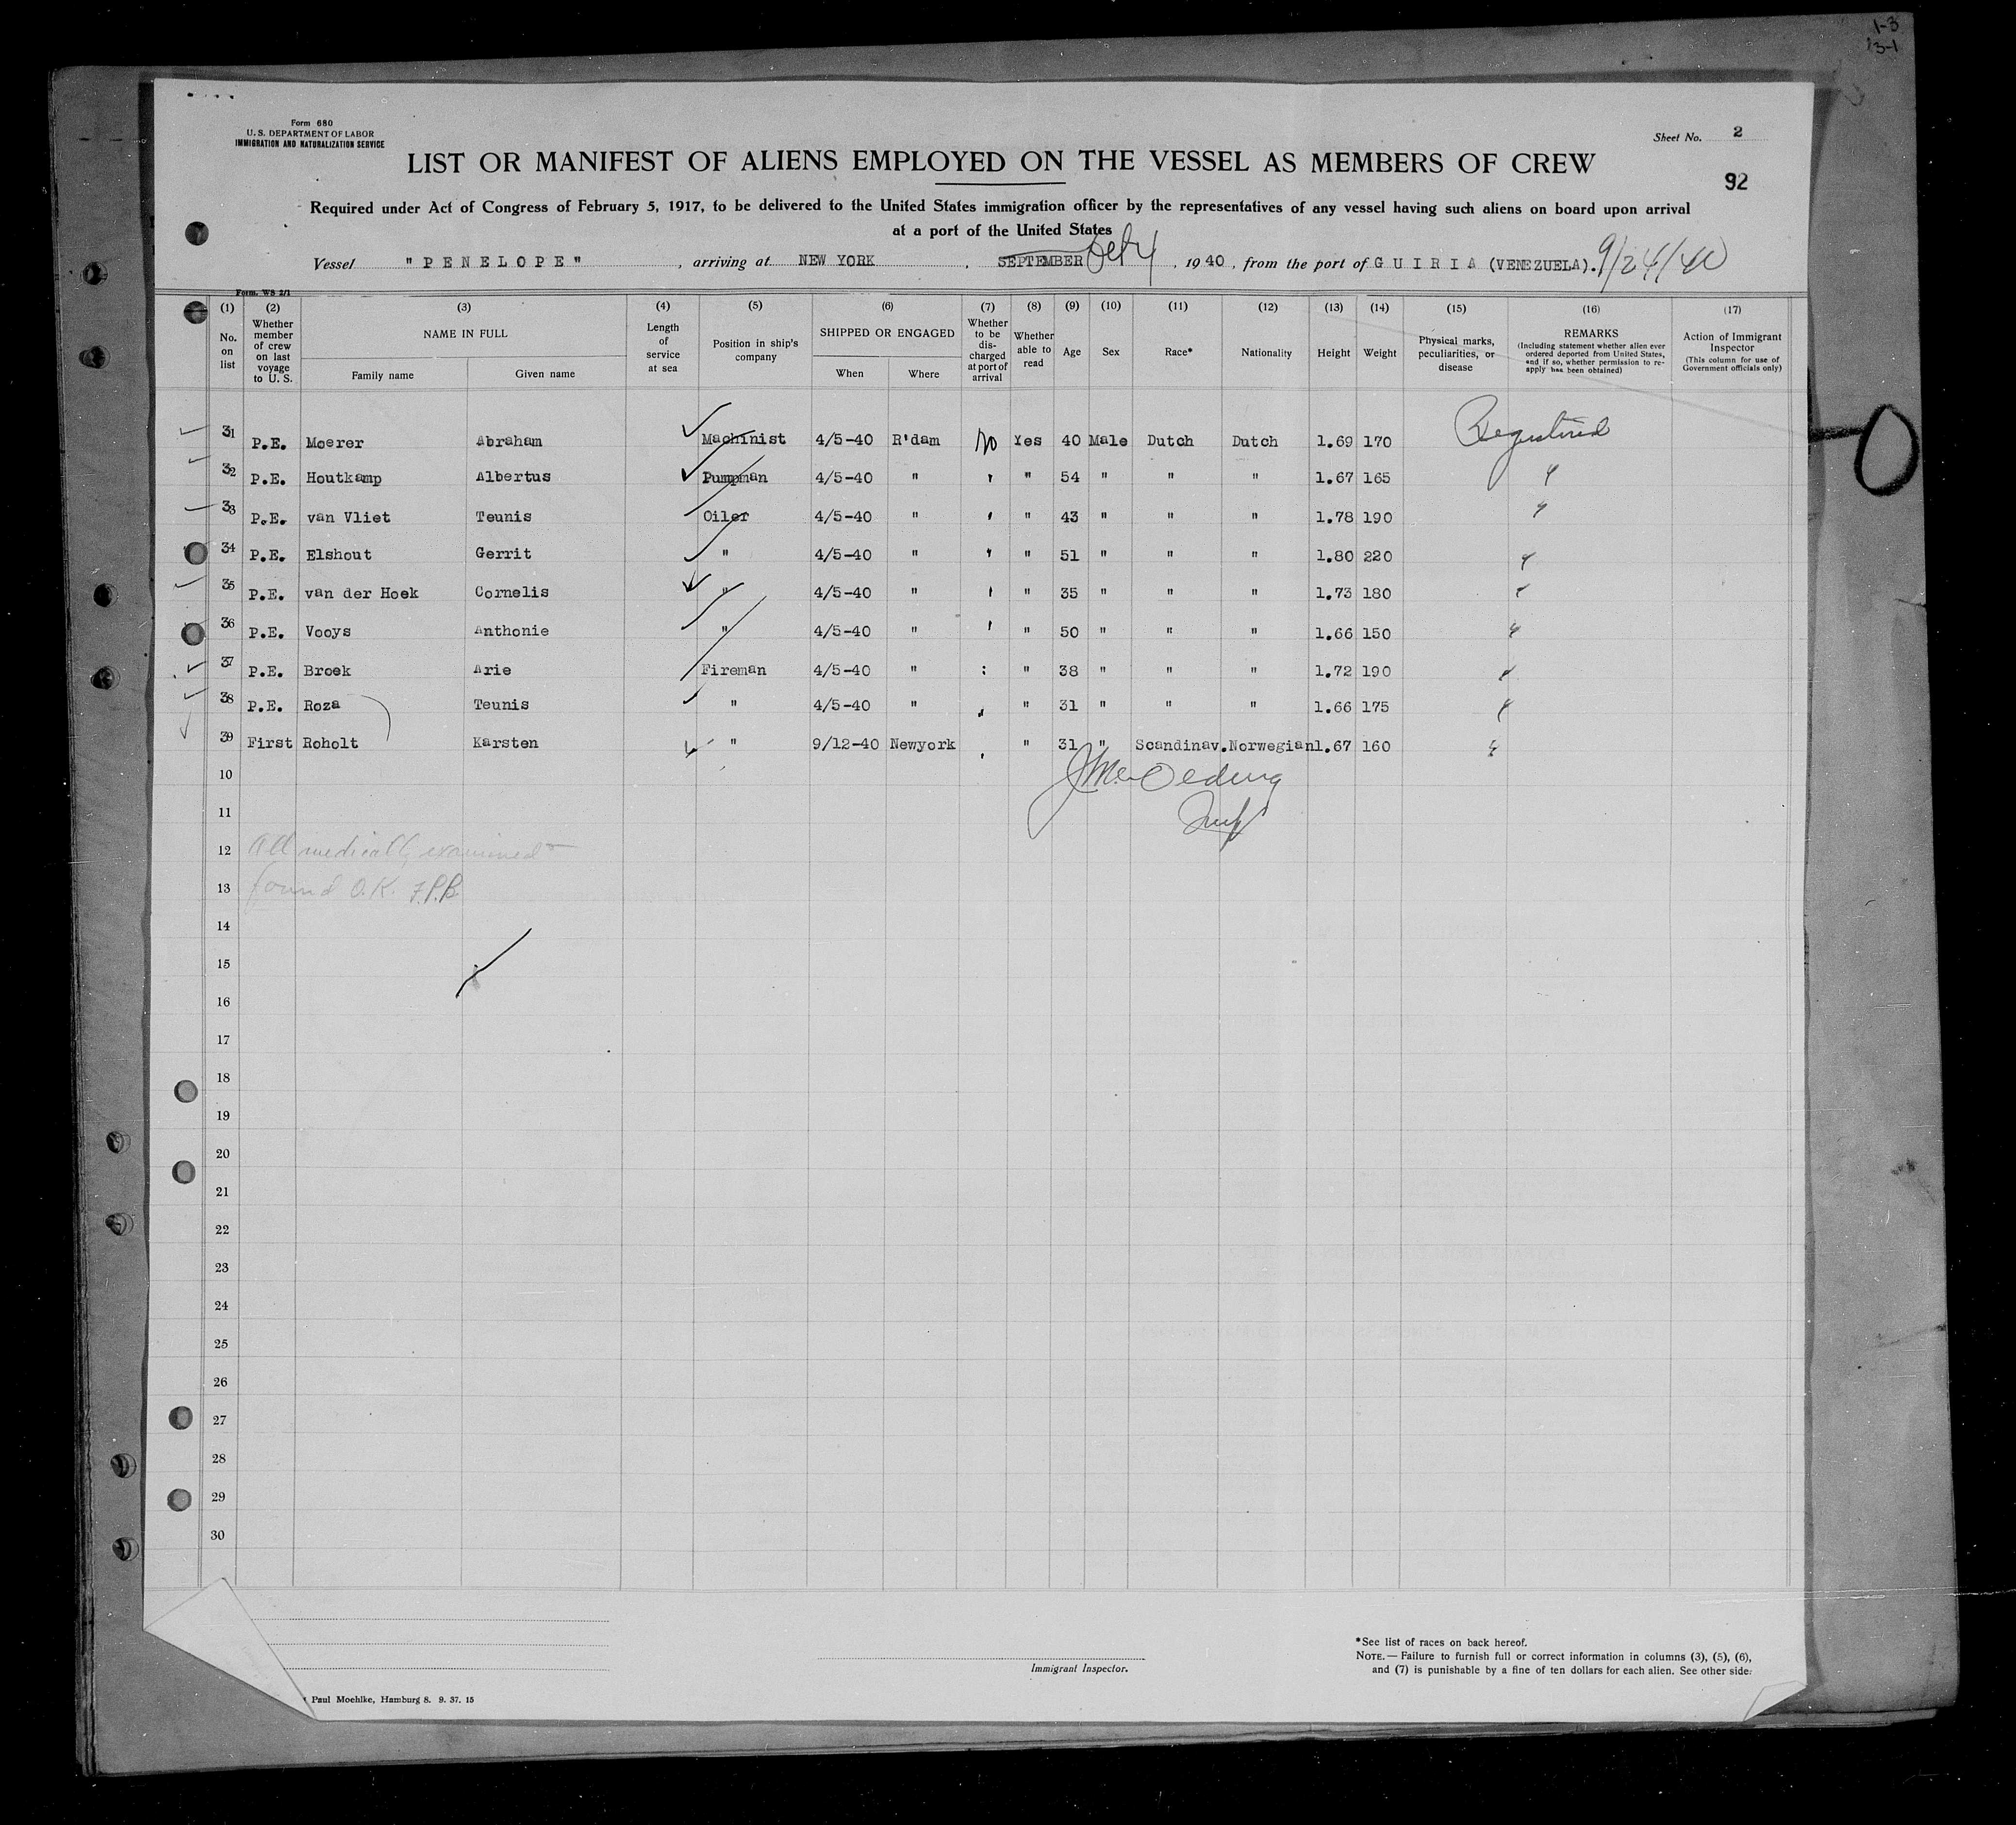 1-3
13-1
Form 680
U. S. DEPARTMENT OF LABOR
IMMIGRATION AND NATURALIZATION SERVICE
Sheet No. 2
LIST OR MANIFEST OF ALIENS EMPLOYED ON THE VESSEL AS MEMBERS OF CREW
92
Required under Act of Congress of February 5, 1917, to be delivered to the United States immigration officer by the representatives of any vessel having such aliens on board upon arrival
at a port of the United States
Vessel "PENELOPE", arriving at NEW YORK, SEPTEMBER, 1940, from the port of GUIRIA (VENEZUELA). 9/24/40
Form. WS 2/1
(1) (2) (3) (4) (5) (6) (7) (8) (9) (10) (11) (12) (13) (14) (15) (16) (17)
No. on list
Whether member of crew on last voyage to U. S.
NAME IN FULL
Family name
Given name
Length of service at sea
Position in ship's company
SHIPPED OR ENGAGED
When
Where
Whether to be discharged at port of arrival
Whether able to read
Age
Sex
Race*
Nationality
Height
Weight
Physical marks, peculiarities, or disease
REMARKS
(Including statement whether alien ever ordered deported from United States, and if so, whether permission to re-apply has been obtained)
Action of Immigrant Inspector
(This column for use of Government officials only)
31 P.E. Moerer Abraham Machinist 4/5-40 R'dam No Yes 40 Male Dutch Dutch 1.69 170 Registered
32 P.E. Houtkamp Albertus Pumpman 4/5-40 " " " 54 " " " 1.67 165 "
33 P.E. van Vliet Teunis Oiler 4/5-40 " " " 43 " " " 1.78 190 "
34 P.E. Elshout Gerrit " 4/5-40 " " " 51 " " " 1.80 220 "
35 P.E. van der Hoek Cornelis " 4/5-40 " " " 35 " " " 1.73 180 "
36 P.E. Vooys Anthonie " 4/5-40 " " " 50 " " " 1.66 150 "
37 P.E. Broek Arie Fireman 4/5-40 " " " 38 " " " 1.72 190 "
38 P.E. Roza Teunis " 4/5-40 " " " 31 " " " 1.66 175 "
39 First Roholt Karsten " 9/12-40 Newyork " " 31 " Scandinav. Norwegian 1.67 160 "
10
11
12 All medically examined
13 found O.K. F.P.B.
14
15
16
17
18
19
20
21
22
23
24
25
26
27
28
29
30
Immigrant Inspector.
*See list of races on back hereof.
NOTE.— Failure to furnish full or correct information in columns (3), (5), (6),
and (7) is punishable by a fine of ten dollars for each alien. See other side.
Paul Moehlke, Hamburg 8. 9. 37. 15